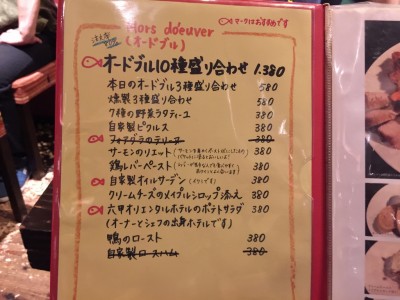 Hors dóeuver
(オードブル)
マークはおすすめです
オードブル10種盛り合わせ 1.380
本日のオードブル3種盛り合わせ 580
燻製3種盛り合わせ 580
7種の野菜ラタティーユ 380
自家製ピクルス 380
フォアグラのテリーヌ 380
サーモンのリエット 380
鶏レバーペースト 380
自家製オイルサーデン 380
クリームチーズのメイプルシロップ添え 380
六甲オリエンタルホテルのポテトサラダ 380
(オーナーとシェフの出身ホテルです)
鴨のロースト 380
自家製ロースハム 380